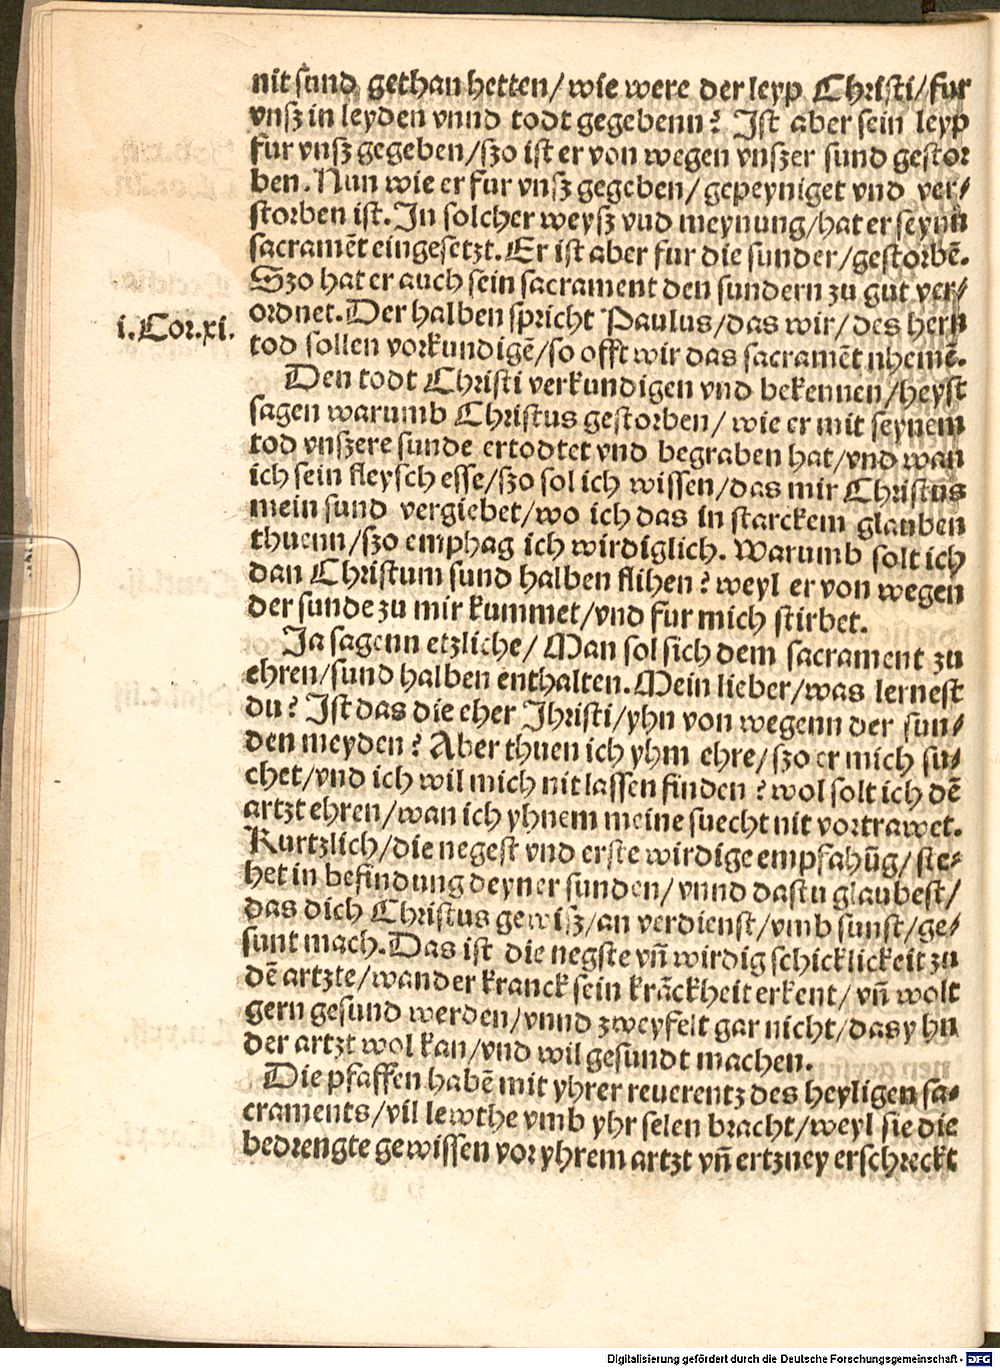 nit sund gethan hetten/ wie were der leyp Christi/ fur
vnsz in leyden vnnd todt gegebenn? Ist aber sein leyp
fur vnsz gegeben/ szo ist er von wegen vnszer sund gestor
ben. Nun wie er fur vnsz gegeben/ gepeyniget vnd ver/
storben ist. In solcher weysz vnd meynung/ hat er seynn
sacramēt eingesetzt. Er ist aber fur die sunder/ gestorbē.
Szo hat er auch sein sacrament den sundern zu gut ver/
ordnet. Der halben spricht Paulus/ das wir/ des hern
i. Cor. xi.
tod sollen vorkundigē/ so offt wir das sacramēt nhemē.
Den todt Christi verkundigen vnd bekennen/ heyst
sagen warumb Christus gestorben/ wie er mit seynem
tod vnszere sunde ertodtet vnd begraben hat/ vnd wan
ich sein fleysch esse/ szo sol ich wissen/ das mir Christus
mein sund vergiebet/ wo ich das in starckem glauben
thuenn/ szo emphag ich wirdiglich. Warumb solt ich
dan Christum sund halben flihen? weyl er von wegen
der sunde zu mir kummet/ vnd fur mich stirbet.
Ja sagenn etzliche/ Man sol sich dem sacrament zu
ehren/ sund halben enthalten. Mein lieber/ was lernest
du? Ist das die eher Jhristi/ yhn von wegenn der sun/
den meyden? Aber thuen ich yhm ehre/ szo er mich su/
chet/ vnd ich wil mich nit lassen finden? wol solt ich dē
artzt ehren/ wan ich yhnem meine suecht nit vortrawet.
Kurtzlich/ die negest vnd erste wirdige empfahūg/ ste-
het in befindung deyner sunden/ vnnd dastu glaubest/
das dich Christus gewisz/ an verdienst/ vmb sunst/ ge/
sunt mach. Das ist die negste vn̄ wirdig schicklickeit zu
dē artzte/ wan der kranck sein krāckheit erkent/ vn̄ wolt
gern gesund werden/ vnnd zweyfelt gar nicht/ das yhn
der artzt wol kan/ vnd wil gesundt machen.
Die pfaffen habē mit yhrer reuerentz des heyligen sa-
craments/ vil lewthe vmb yhr selen bracht/ weyl sie die
bedrengte gewissen vor yhrem artzt vn̄ ertzney erschreckt
Digitalisierung gefördert durch die Deutsche Forschungsgemeinschaft - DFG